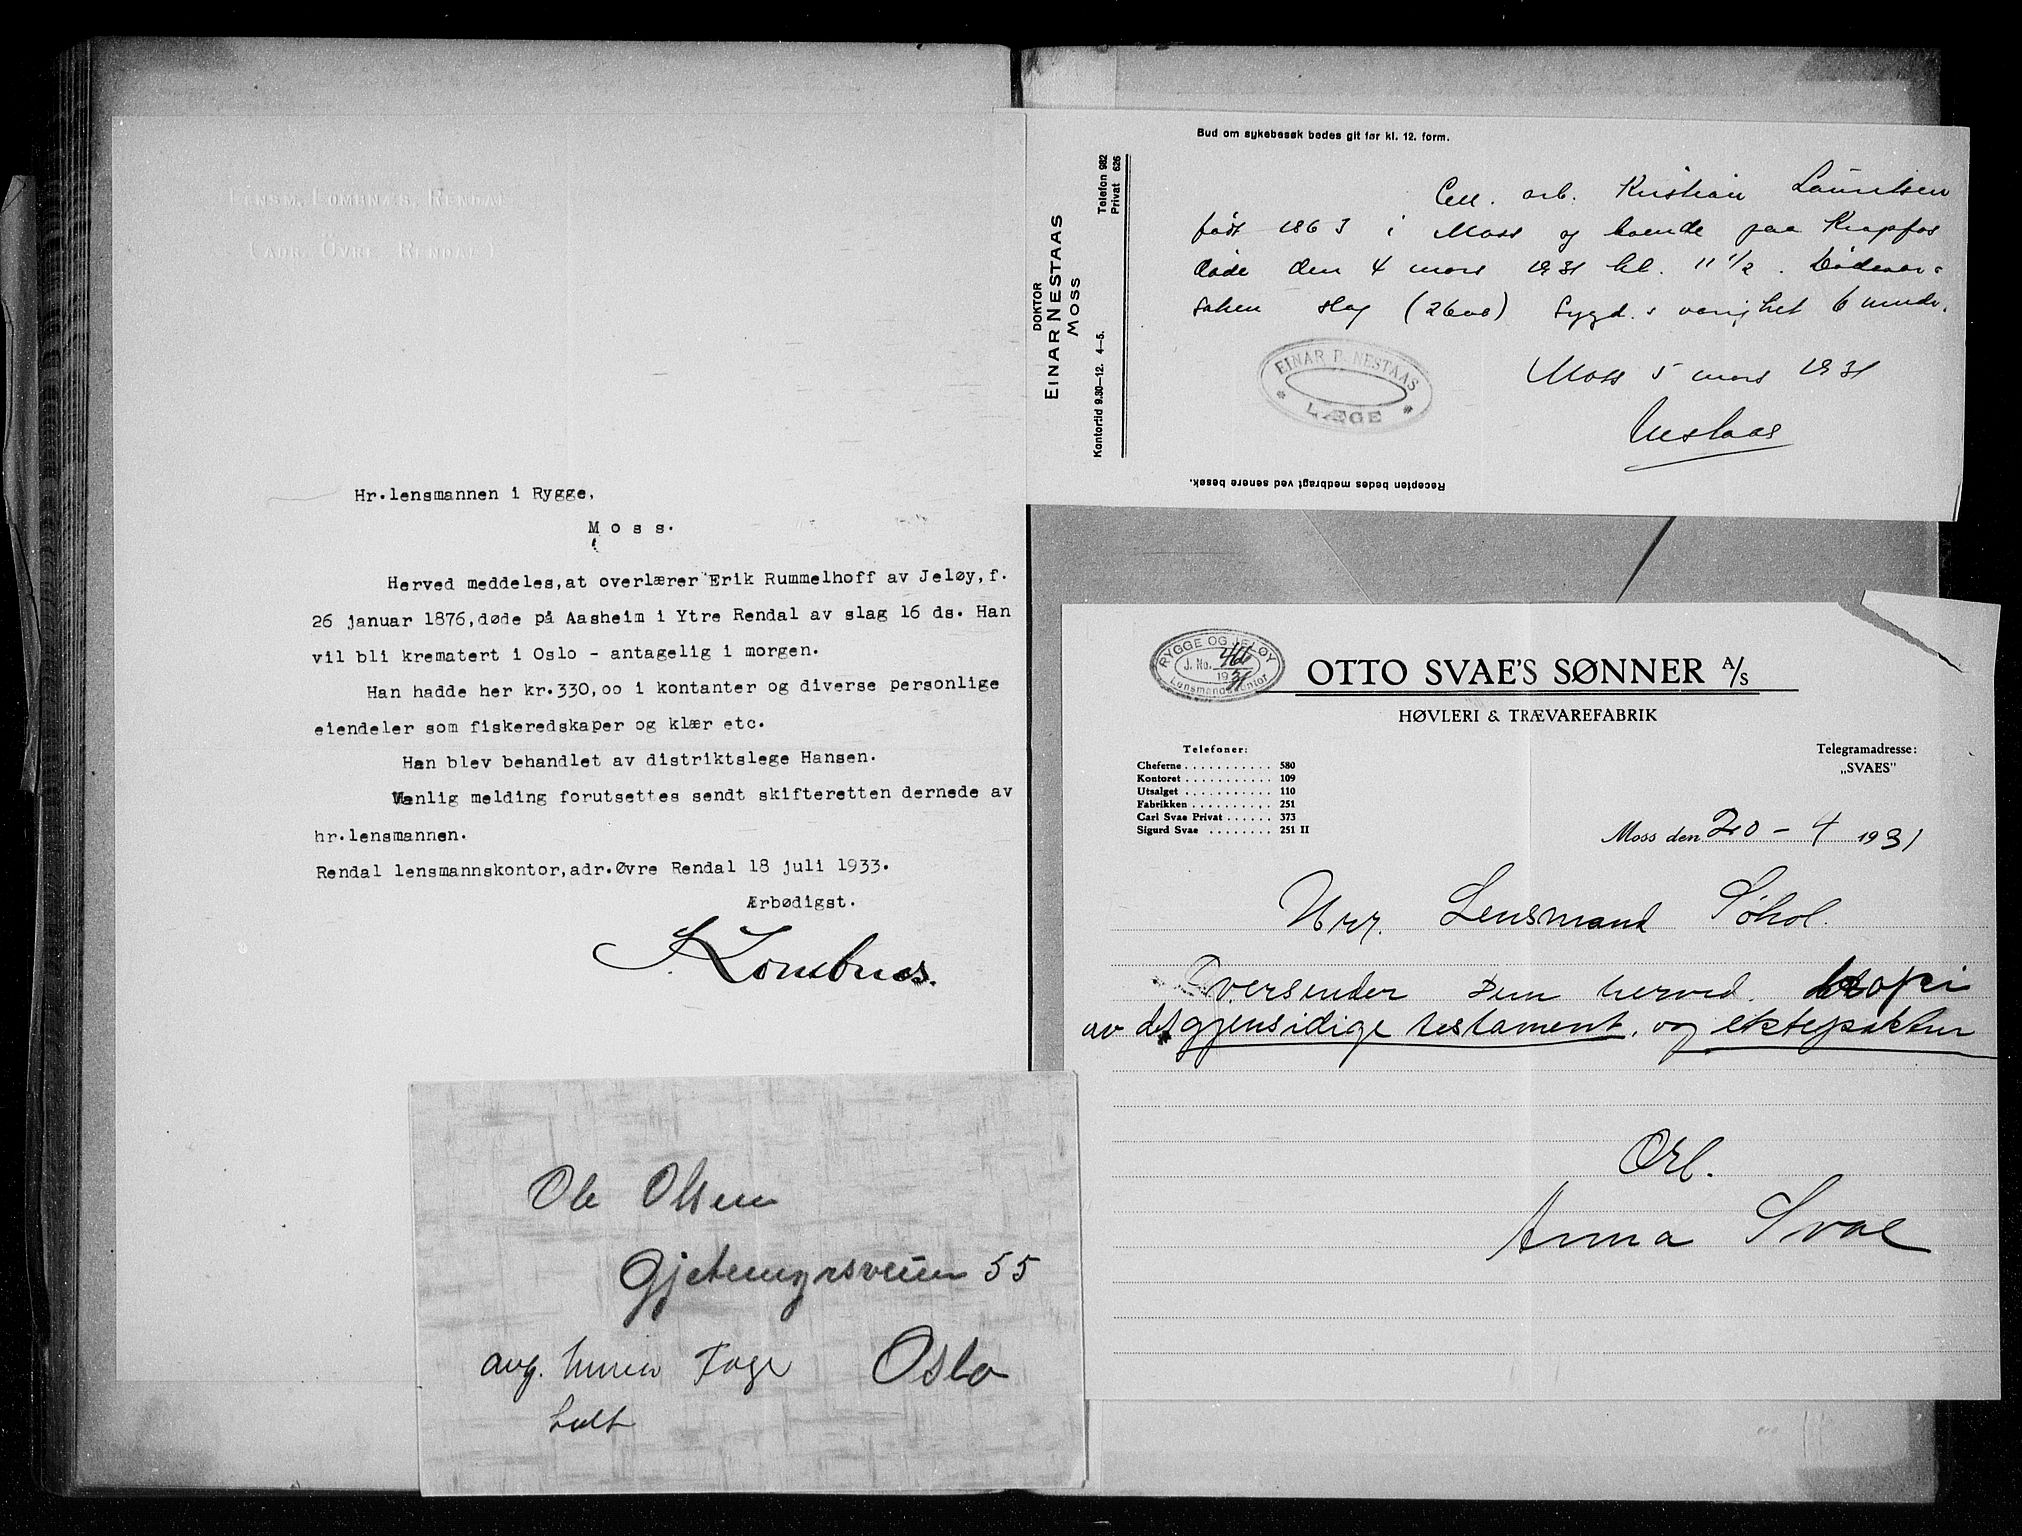 LENSM. LOMBNÆS, RENDAL
(ADR. ØVRE RENDAL)
Hr.lensmannen i Rygge,
Moss.
Herved meddeles,at overlærer Erik Rummelhoff av Jeløy,f.
26 januar 1876,døde på Aasheim i Ytre Rendal av slag 16 ds. Han
vil bli krematert i Oslo - antagelig i morgen.
Han hadde her kr.330,oo i kontanter og diverse personlige
eiendeler som fiskeredskaper og klær etc.
Han blev behandlet av distriktslege Hansen.
Vanlig melding forutsettes sendt skifteretten dernede av
hr.lensmannen.
Rendal lensmannskontor,adr.Øvre Rendal 18 juli 1933.
Ærbødigst.
Lombnæs.
Ole Olsen
Gjetemyrsveien 55
Oslo
ang.
Bud om sykebesøk bedes git før kl. 12. form.
DOKTOR
EINAR NESTAAS
MOSS
Kontortid 9.30—12. 4—5.
Telefon 982
Privat 626
Cell. arb. Kristian Lauritsen
født 1863 i Moss og boende paa Krapfos
døde den 4 mars 1931 kl. 11 1/2. Dødsaar-
saken slag (2600) Sygd.s varighet 6
EINAR P. NESTAAS
* LÆGE *
Moss 5 mars 1931
Nestaas
Recepten bedes medbragt ved senere besøk.
RYGGE OG JELØY
J. No.
1931
Lensmandskontor
OTTO SVAE'S SØNNER A/S
HØVLERI & TRÆVAREFABRIK
Telefoner:
Cheferne . . . . . . . . . . . 580
Kontoret . . . . . . . . . . . 109
Utsalget . . . . . . . . . . . 110
Fabrikken . . . . . . . . . . 251
Carl Svae Privat . . . . . . 373
Sigurd Svae . . . . . . . . 251 II
Telegramadresse:
„SVAES"
Moss den 20 - 4 1931
Hrr. Lensmand Søhol.
Oversender Dem herved kopi
av det gjensidige testament, og ektepakten
Ærb.
Anna Svae